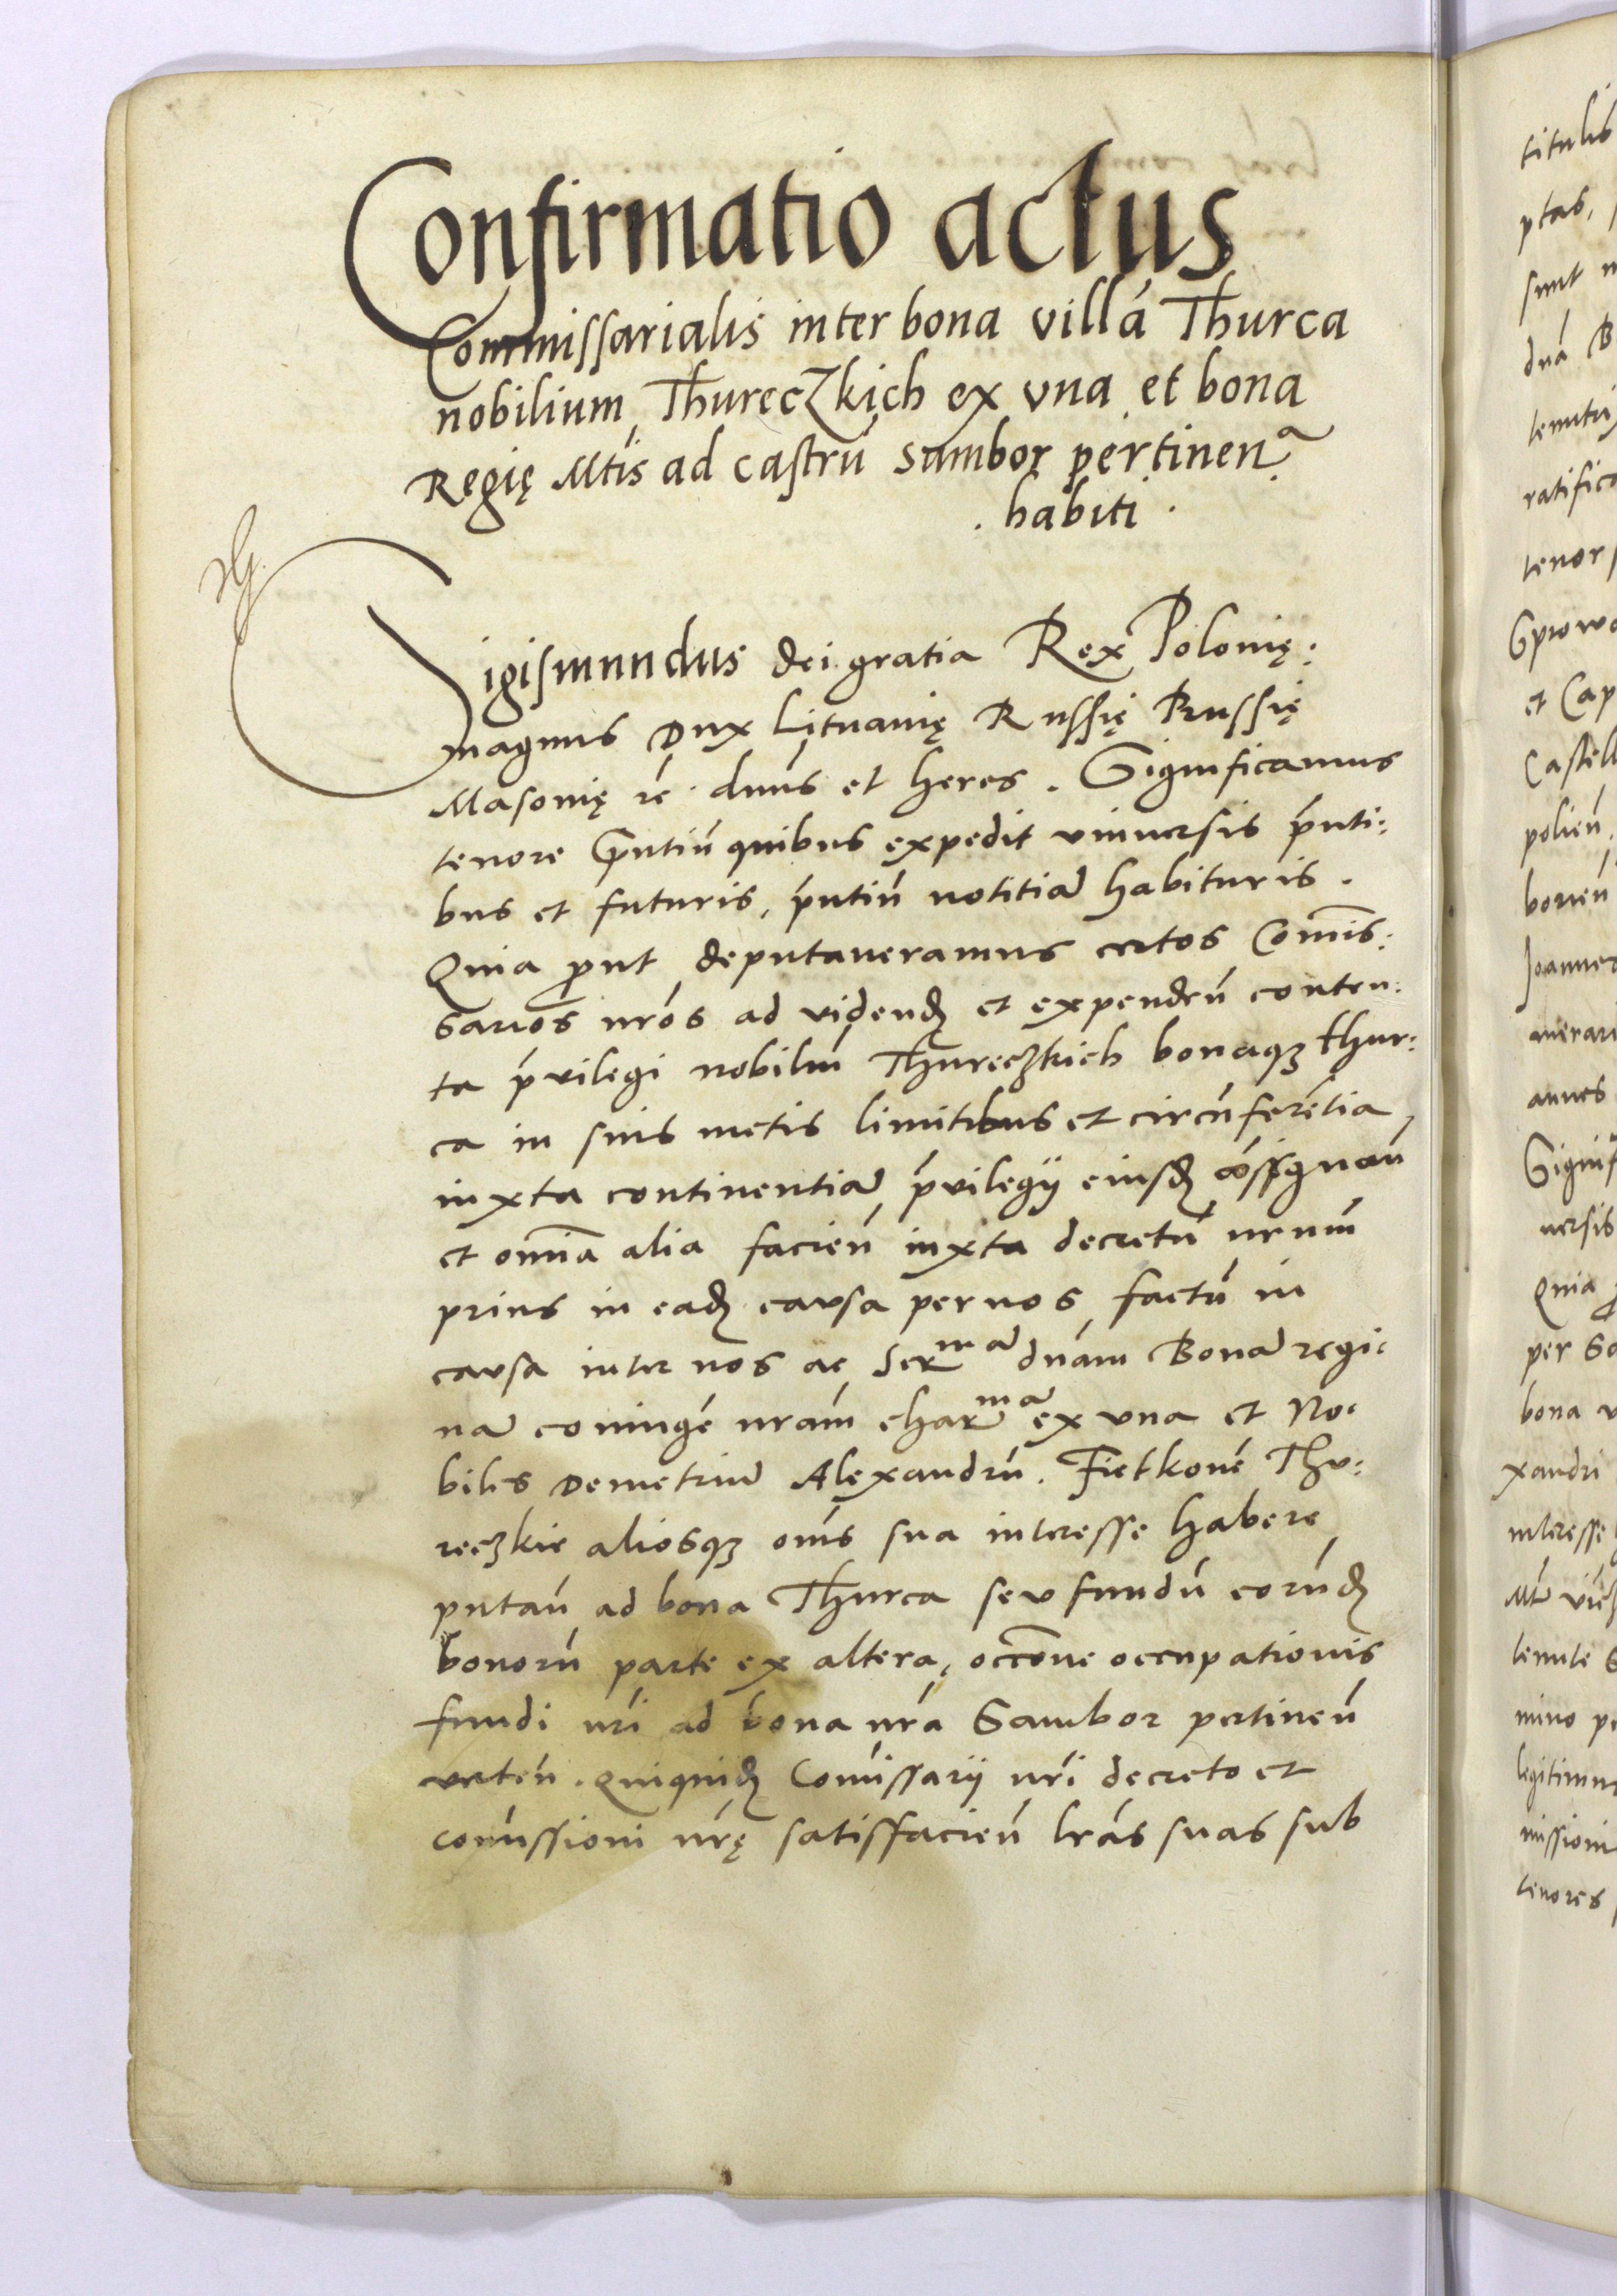 Confirmatio actus
Commissarialis inter bona villā Thurca
nobilium Thureczkich ex vna et bona
Regię Mtis ad castrū Sambor pertinen.
. habiti .
Sigismundus dei gratia Rex Polonię:
magnus Dux Lituanię Russię Prussię
Masonię rē. dnūs et heres. Significamus
tenore pn̄tiū quibus expedit vniuersis pn̄ti:
bus et futuris, pn̄tiū notitiā habituris.
Quia prout deputaueramus certos Com̄is:
sarios nr̄os ad videnđ et expendēn conten:
ta pr̄uilegi nobiliū Thureczkich bonaqȝ thur:
ca in suis metis limitibus et circūferētia,
iuxta continentiā pr̄uilegij eiusđ assignan̄
et om̄ia alia facien̄ iuxta decretū nrūm
prius in eađ causa per nos factū in
causa inter nos ac Serma dn̄am Bonā regi:
nā coniugē nrām charma ex vna et No:
biles Demetriū Alexandrū. Fietkonē Thu:
reczkie aliosqȝ om̄s sua interesse habere
putan̄ ad bona Thurca seu fundū eorūđ
bonorū parte ex altera, occōne occupationis
fundi nr̄i ad bona nr̄a Sambor pertinen̄
verten̄. Quiquiđ Com̄issarij nr̄i decreto et
com̄issioni nr̄ę satisfacien̄ lr̄as suas sub
titulis
ptas,
sunt
dn̄a B
tenor
et Cap
Castell
polien̄
Joannes
annes
Signif
uersis
Quia
bona v
xandri
interesse
mino
legitimu
missioni
tenores